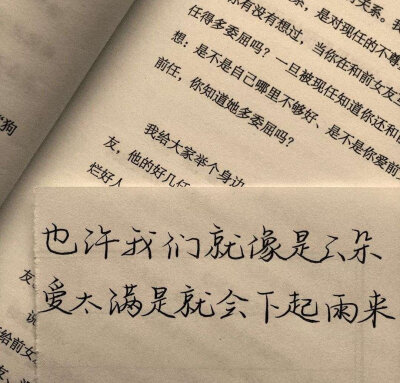 关系。我
系，是对现任的不尊
你有没有想过，当你在和前女友
任得多委屈吗？一旦被现任知道你还和
想：是不是自己哪里不够好、是不是你爱前
前任，你知道她多委屈吗？
狗
我给大家举个身边
友，他的好几任
烂好人
友
给前女
也许我们就像是云朵
爱太满是就会下起雨来